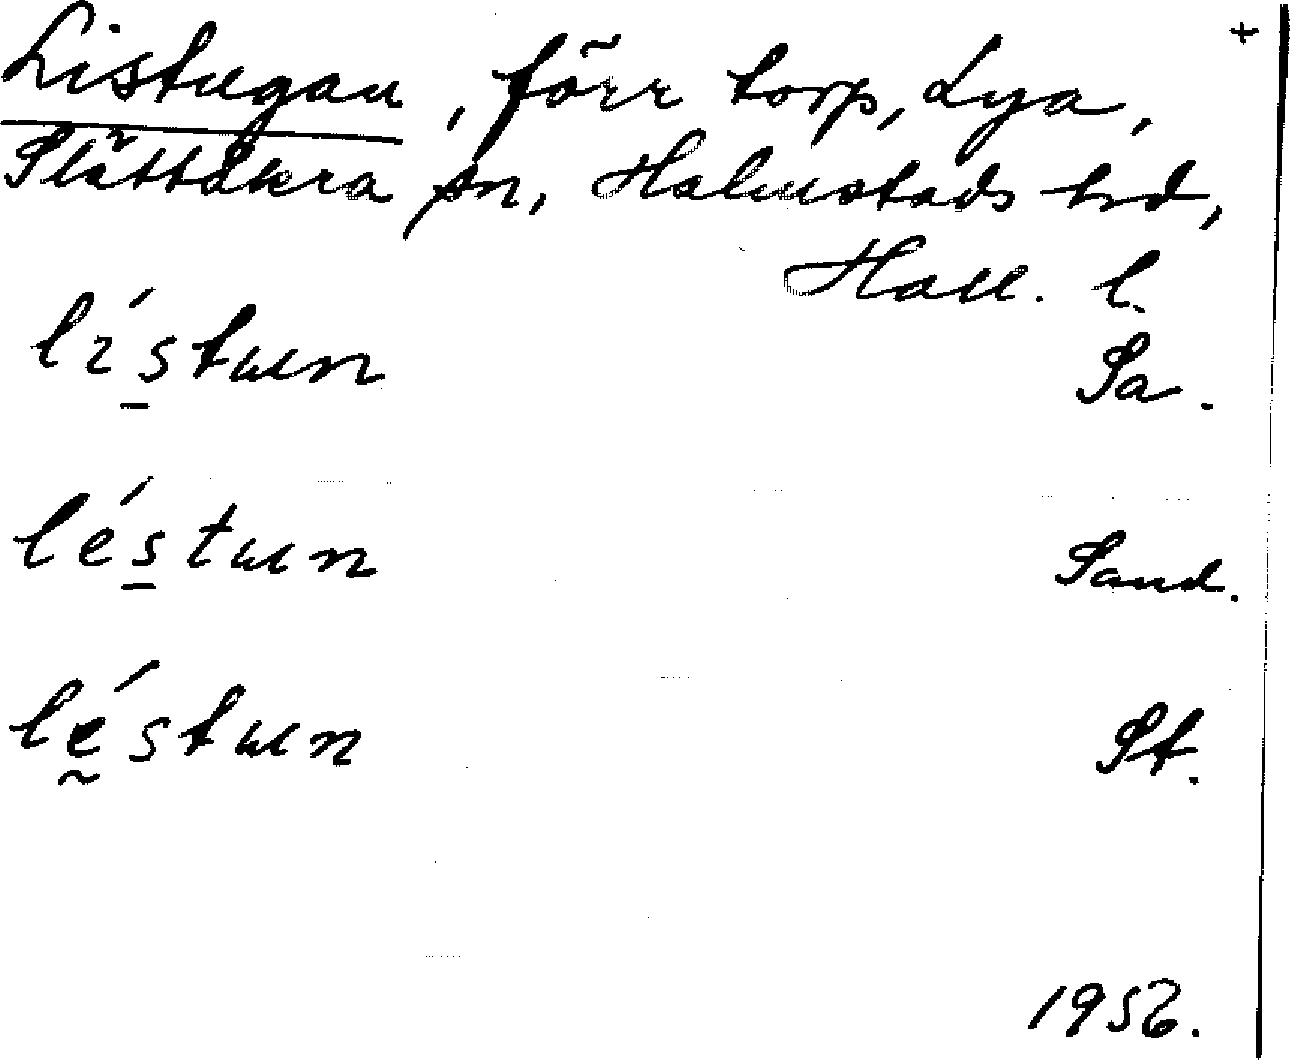 Listugan, förr torp, Lya, +
Slättåkra sn, Halmstads hd,
Hall. l.
lístun Sa.
léstun Sand.
léstun St.
1956.